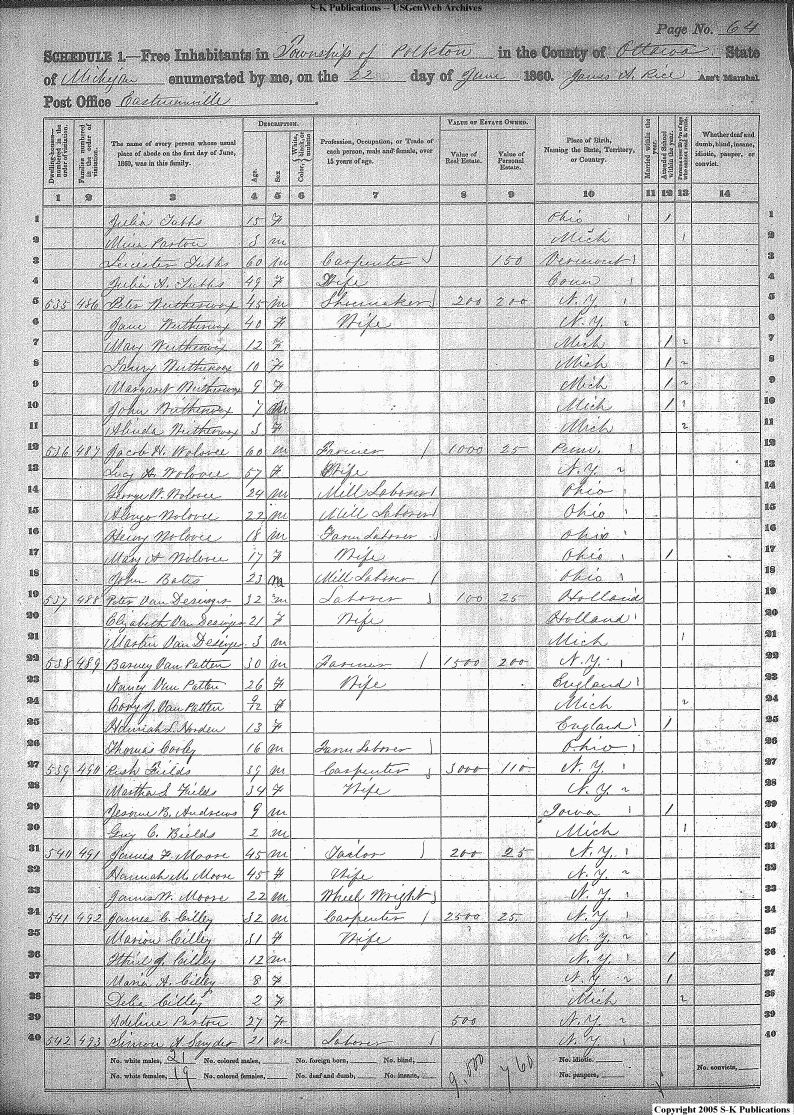 S-K Publications -- USGenWeb Archives
Page No. 64
SCHEDULE 1.—Free Inhabitants in Township of Polkton in the County of Ottawa State
of Michigan enumerated by me, on the 22 day of June 1860. James A. Rice Ass't Marshal
Post Office Eastmanville.
Dwelling-houses—numbered in the order of visitation.
Families numbered in the order of visitation.
The name of every person whose usual place of abode on the first day of June, 1860, was in this family.
DESCRIPTION.
Age. Sex Color, White, black, or mulatto
Profession, Occupation, or Trade of each person, male and female, over 15 years of age.
VALUE OF ESTATE OWNED.
Value of Real Estate. Value of Personal Estate.
Place of Birth, Naming the State, Territory, or Country.
Married within the year. Attended School within the year.
Whether deaf and dumb, blind, insane, idiotic, pauper, or convict.
1 2 3 4 5 6 7 8 9 10 11 12 13 14
1 Julia Tubbs 15 F Ohio 1 1
2 3 m Mich 1 2
3 Tubbs 60 m Carpenter 150 Vermont 3
4 Julia A. Tubbs 49 F Wife Conn 4
5 535 486 Peter 45 m Shoemaker 200 200 N.Y. 5
6 Jane 40 F Wife N.Y. 6
7 Mary 12 F Mich 1 7
8 10 F Mich 1 8
9 Margaret 9 F Mich 1 9
10 John 7 m Mich 1 1 10
11 3 F Mich 11
12 536 487 Jacob H. Wolover 60 m Farmer 1000 25 Penn. 12
13 Lucy A. Wolover 57 F Wife N.Y. 13
14 George W. Wolover 24 m Mill Laborer Ohio 14
15 Alonzo Wolover 22 m Mill Laborer Ohio 15
16 Henry Wolover 18 m Farm Laborer Ohio 16
17 Mary A Wolover 17 F Wife Ohio 1 17
18 John Bates 23 m Mill Laborer Ohio 18
19 537 488 Peter Van 32 m Laborer 100 25 Holland 19
20 Elizabeth Van 21 F Wife Holland 20
21 Martin Van 3 m Mich 1 21
22 538 489 Barney Van Patten 30 m Farmer 1500 200 N.Y. 22
23 Nancy Van Patten 26 F Wife England 23
24 Van Patten 9/12 F Mich 24
25 Hannah L. 13 F England 1 25
26 Thomas Cooley 16 m Farm Laborer Ohio 26
27 539 490 Fields 39 m Carpenter 3000 110 N.Y. 27
28 Martha S Fields 34 F Wife N.Y. 28
29 Jerome B. Andrews 9 m Iowa 1 29
30 Guy C. Fields 2 m Mich 1 30
31 540 491 James F. Moore 45 m Tailor 200 25 N.Y. 31
32 Hannah M. Moore 45 F Wife N.Y. 32
33 James W. Moore 22 m Wheel Wright N.Y. 33
34 541 492 James C. Cilley 32 m Carpenter 2500 25 N.Y. 34
35 Marion Cilley 31 F Wife N.Y. 35
36 Cilley 12 m N.Y. 1 36
37 Maria A. Cilley 8 F N.Y. 1 37
38 Delia Cilley 2 F Mich 38
39 Adeline 27 F 500 N.Y. 39
40 542 493 Simeon A Snyder 21 m Laborer N.Y. 40
No. white males, 21 No. colored males, No. foreign born, No. blind, No. idiotic, No. convicts,
No. white females, 19 No. colored females, No. deaf and dumb, No. insane, 9,000 760 No. paupers,
Copyright 2005 S-K Publications